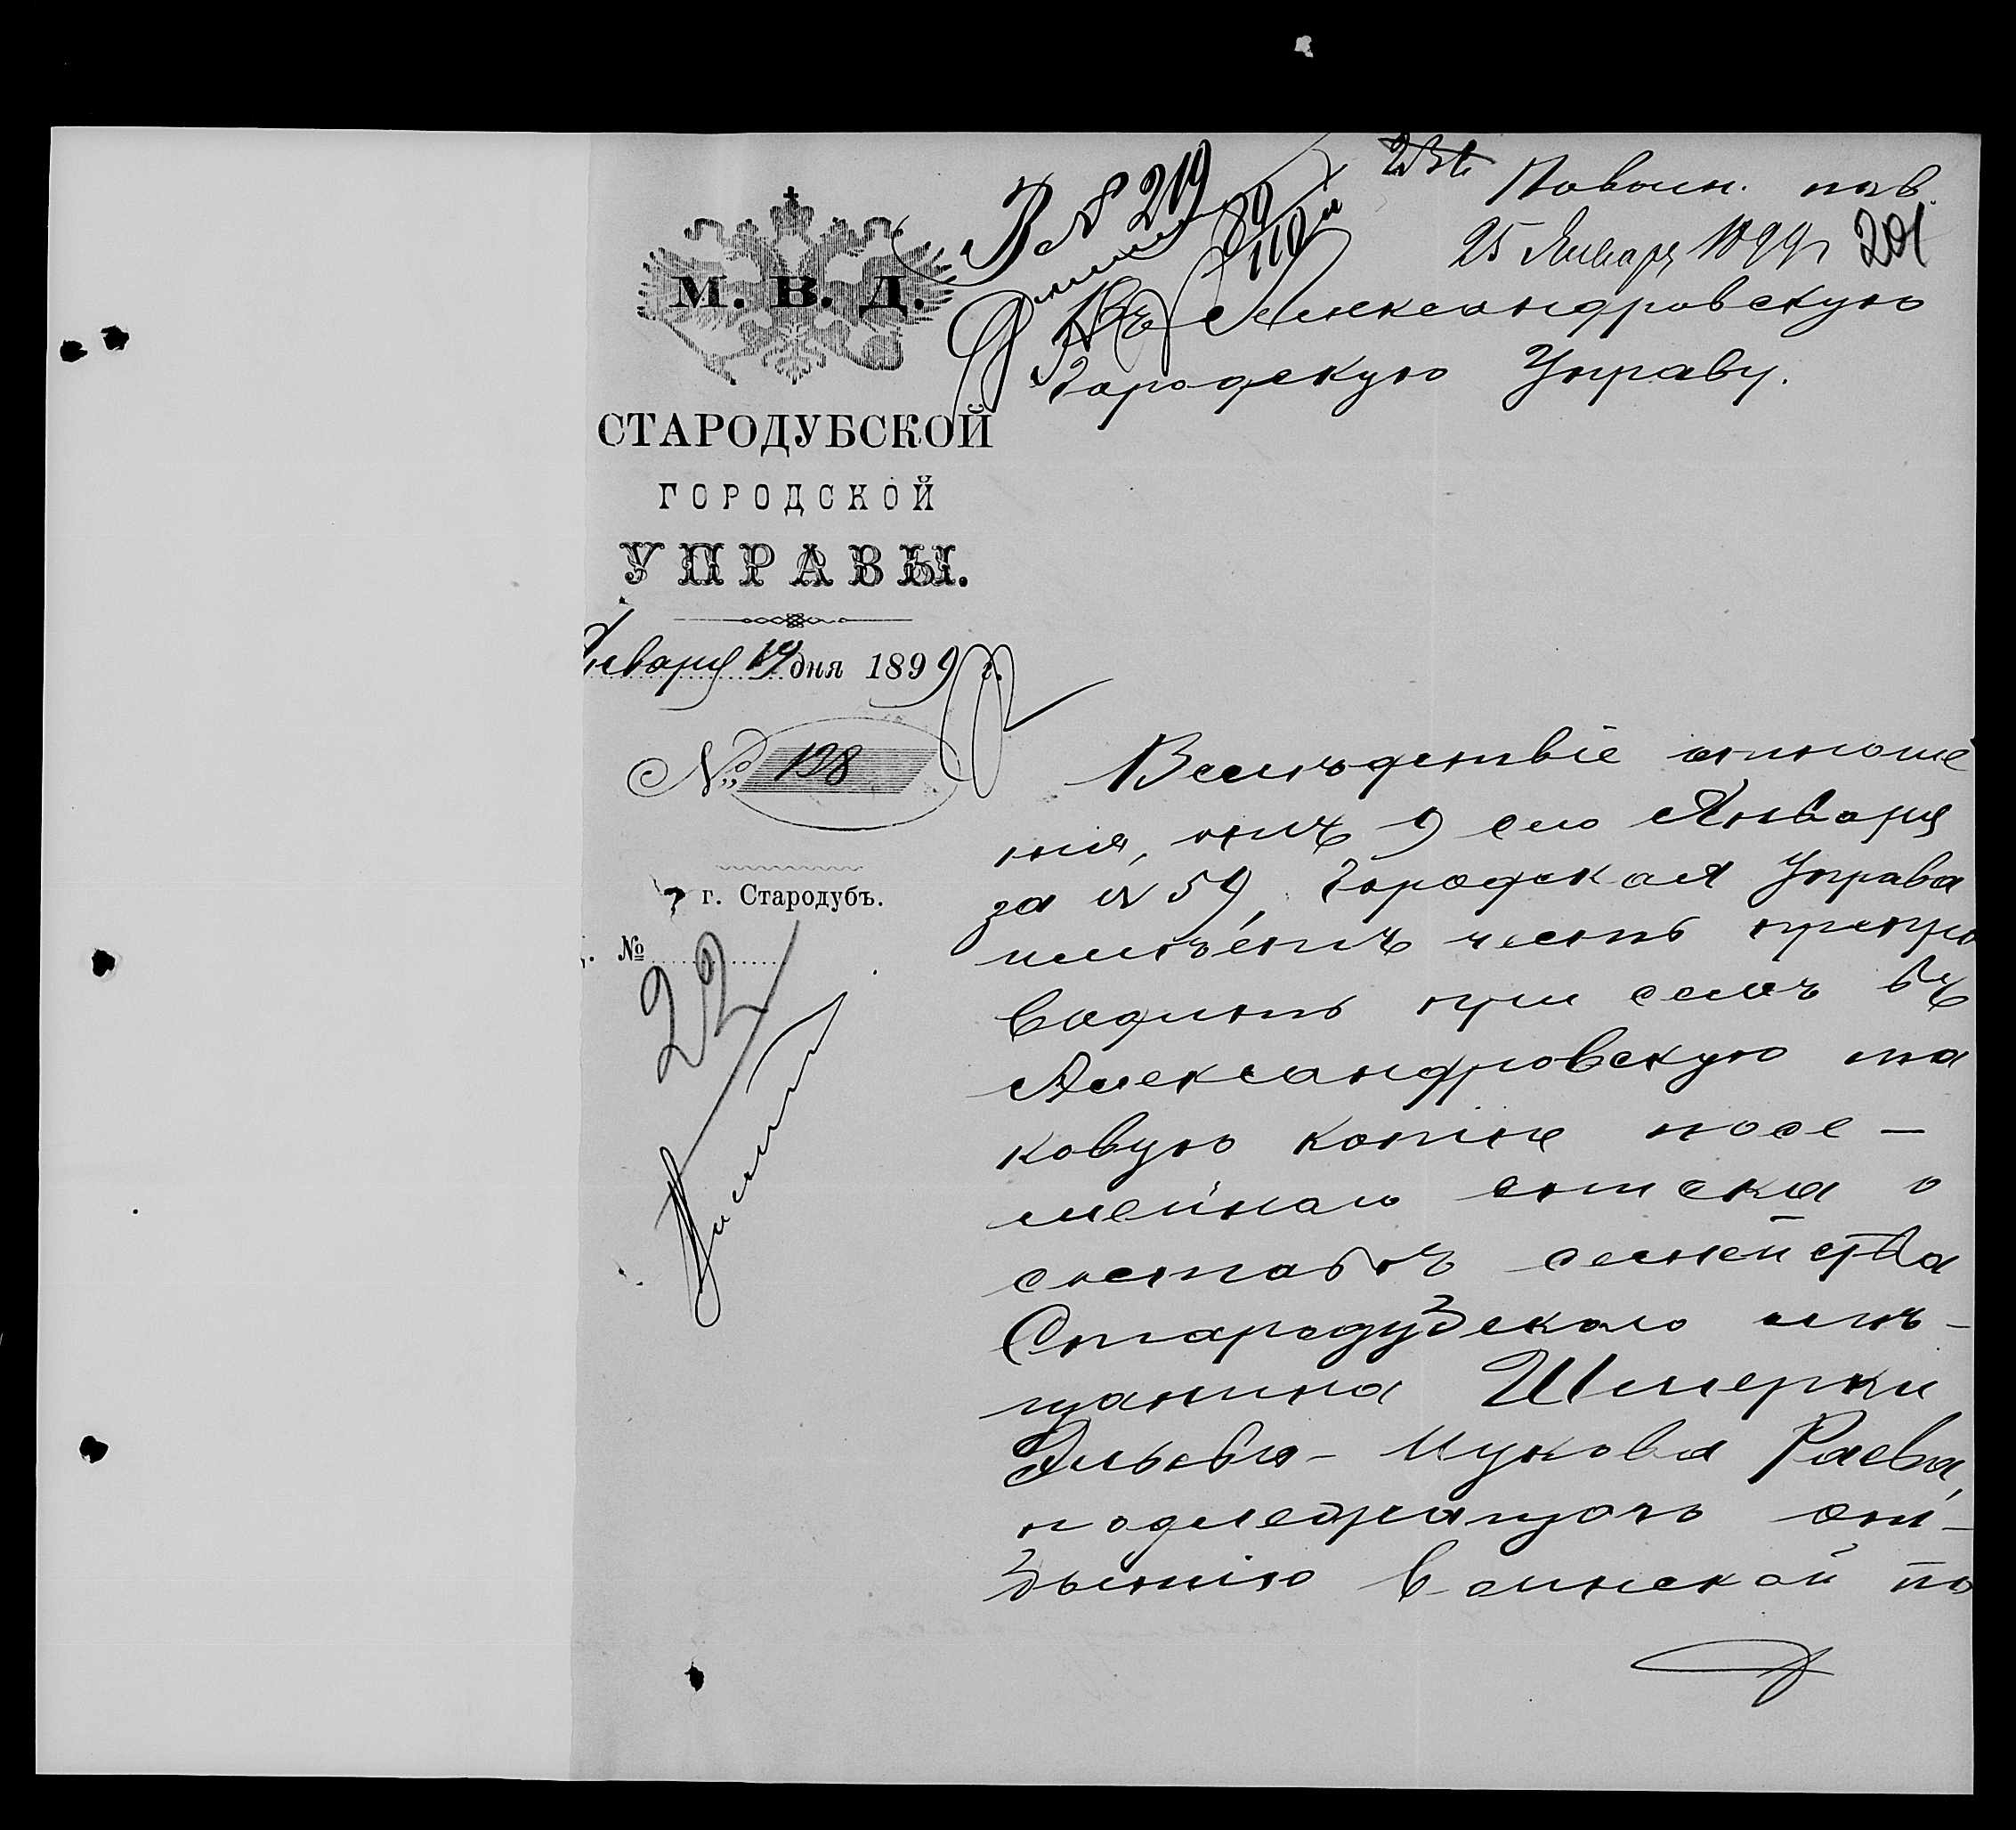 М. В. Д.
СТАРОДУБСКОЙ
ГОРОДСКОЙ
УПРАВЫ.
Января 19 дня 1899 г.
№ 138
г. Стародубъ.
№
22
В № 219
Повоин. пов.
25 Января 1899 г. 201
Въ Александровскую
Городскую Управу.
Вслѣдствіе отноше
нія, отъ 9 сего Января
за № 59, Городская Управа
имѣетъ честь препро
водить при семъ въ
Александровскую та
ковую копію посе-
мейнаго списка о
составѣ семейства
Стародубскаго мѣ-
щанина Шмерки
Раева,
подлежащаго от-
быванію воинской по